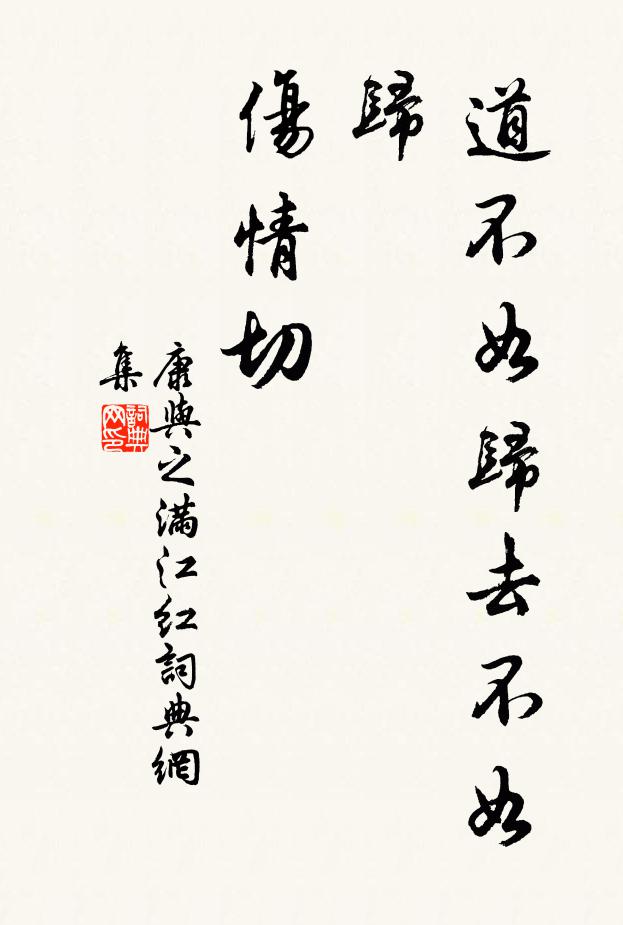 道不如歸去不如
歸
傷情切
康與之滿江紅詞典網
集
詞典
网印